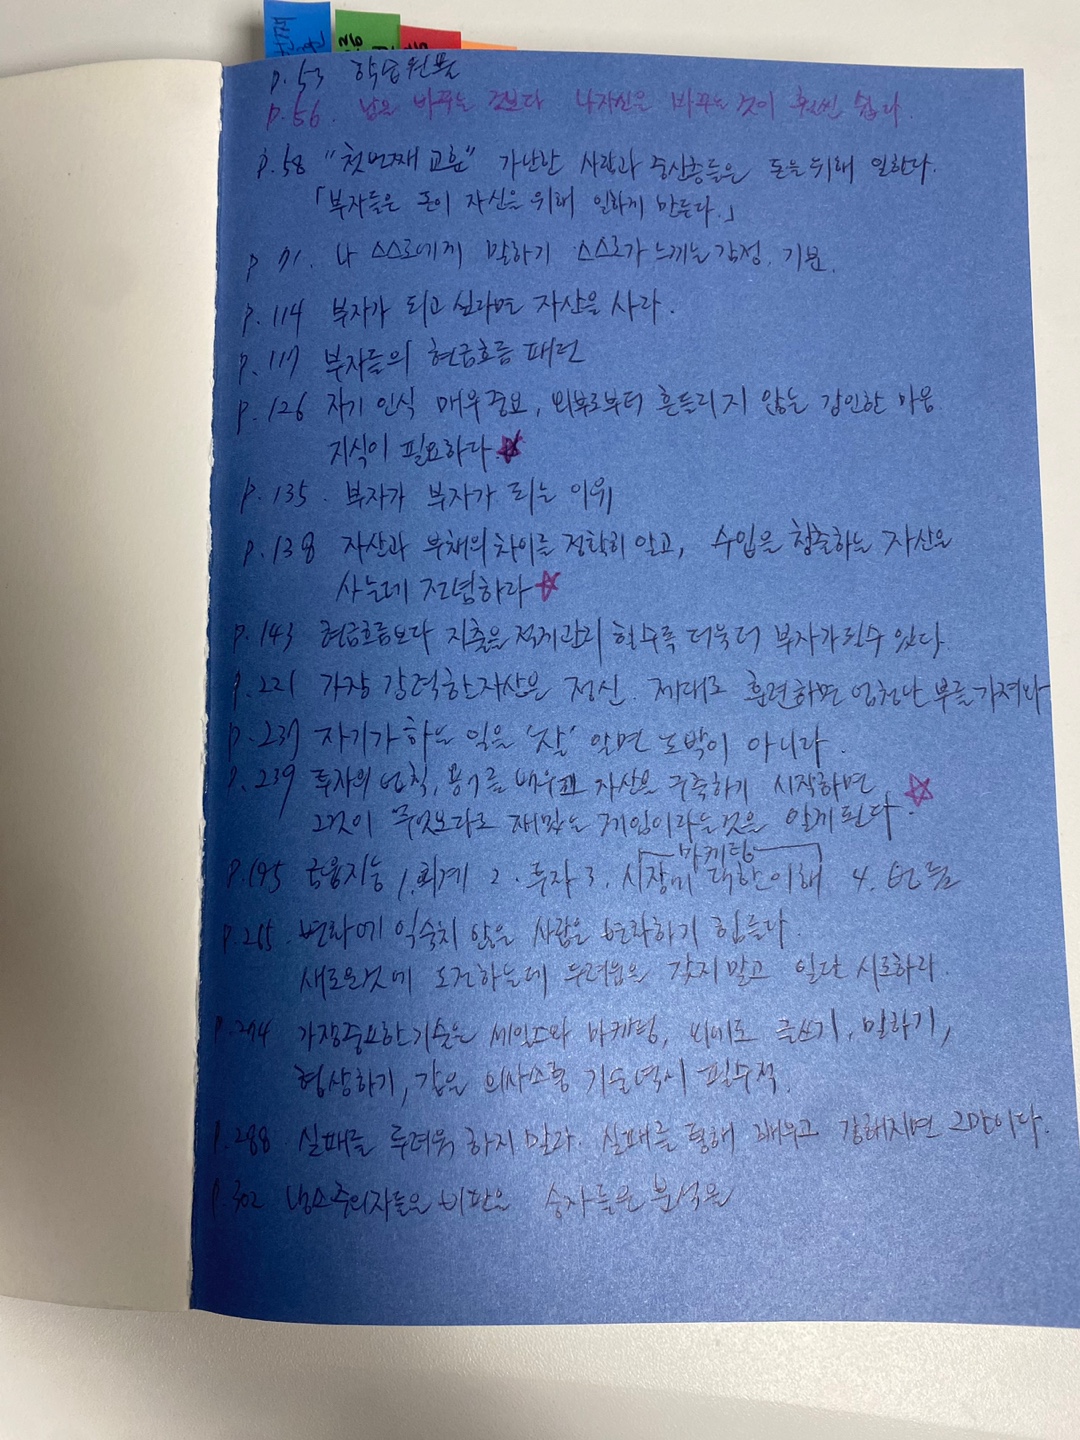 p.53 학습 원뿔
p.56. 남을 바꾸는 것보다 나자신을 바꾸는 것이 훨씬 쉽다.
p.58 "첫번째 교훈" 가난한 사람과 중산층들은 돈을 위해 일한다.
「부자들은 돈이 자신을 위해 일하게 만든다.」
p 71. 나 스스로에게 말하기 스스로가 느끼는 감정. 기분.
p.114 부자가 되고 싶다면 자산을 사라.
p.117 부자들의 현금흐름 패턴
p.126 자기 인식 매우 중요, 외부로부터 흔들리지 않는 강인한 마음
지식이 필요하다.
p.135. 부자가 부자가 되는 이유
p.138 자산과 부채의 차이를 정확히 알고, 수입을 창출하는 자산을
사는데 전념하라
p.143 현금흐름보다 지출을 적게관리 할수록 더욱더 부자가 될수 있다.
p.221 가장 강력한 자산은 정신. 제대로 훈련하면 엄청난 부를 가져다
p.237 자기가 하는 일을 '잘' 알면 도박이 아니다.
p.239 투자의 법칙, 용기를 배우고 자산을 구축하기 시작하면
그것이 무엇보다도 재밌는 게임이라는것을 알게 된다.
마케팅
p.195 금융지능 1.회계 2.투자 3.시장에 대한 이해 4.법률
p.265. 변화에 익숙치 않은 사람은 변화하기 힘들다.
새로운것에 도전하는데 두려움을 갖지말고 일단 시도하라.
p.274 가장중요한기술은 세일즈와 마케팅, 외에도 글쓰기, 말하기,
협상하기, 같은 의사소통 기술역시 필수적.
p.288. 실패를 두려워 하지 말라. 실패를 통해 배우고 강해지면 그만이다.
p.302 냉소주의자들은 비판을 승자들은 분석을